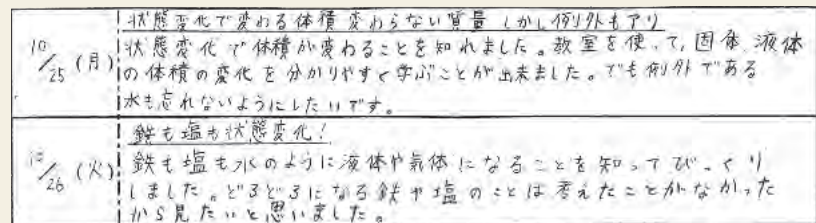 状態変化で変わる体積 変わらない質量 しかし例外もアリ
10/25（月）
状態変化で体積が変わることを知れました。教室を使って、固体、液体
の体積の変化を分かりやすく学ぶことが出来ました。でも例外である
水も忘れないようにしたいです。
鉄も塩も状態変化！
10/26（火）
鉄も塩も水のように液体や気体になることを知ってびっくり
しました。どろどろになる鉄や塩のことは考えたことがなかった
から見たいと思いました。